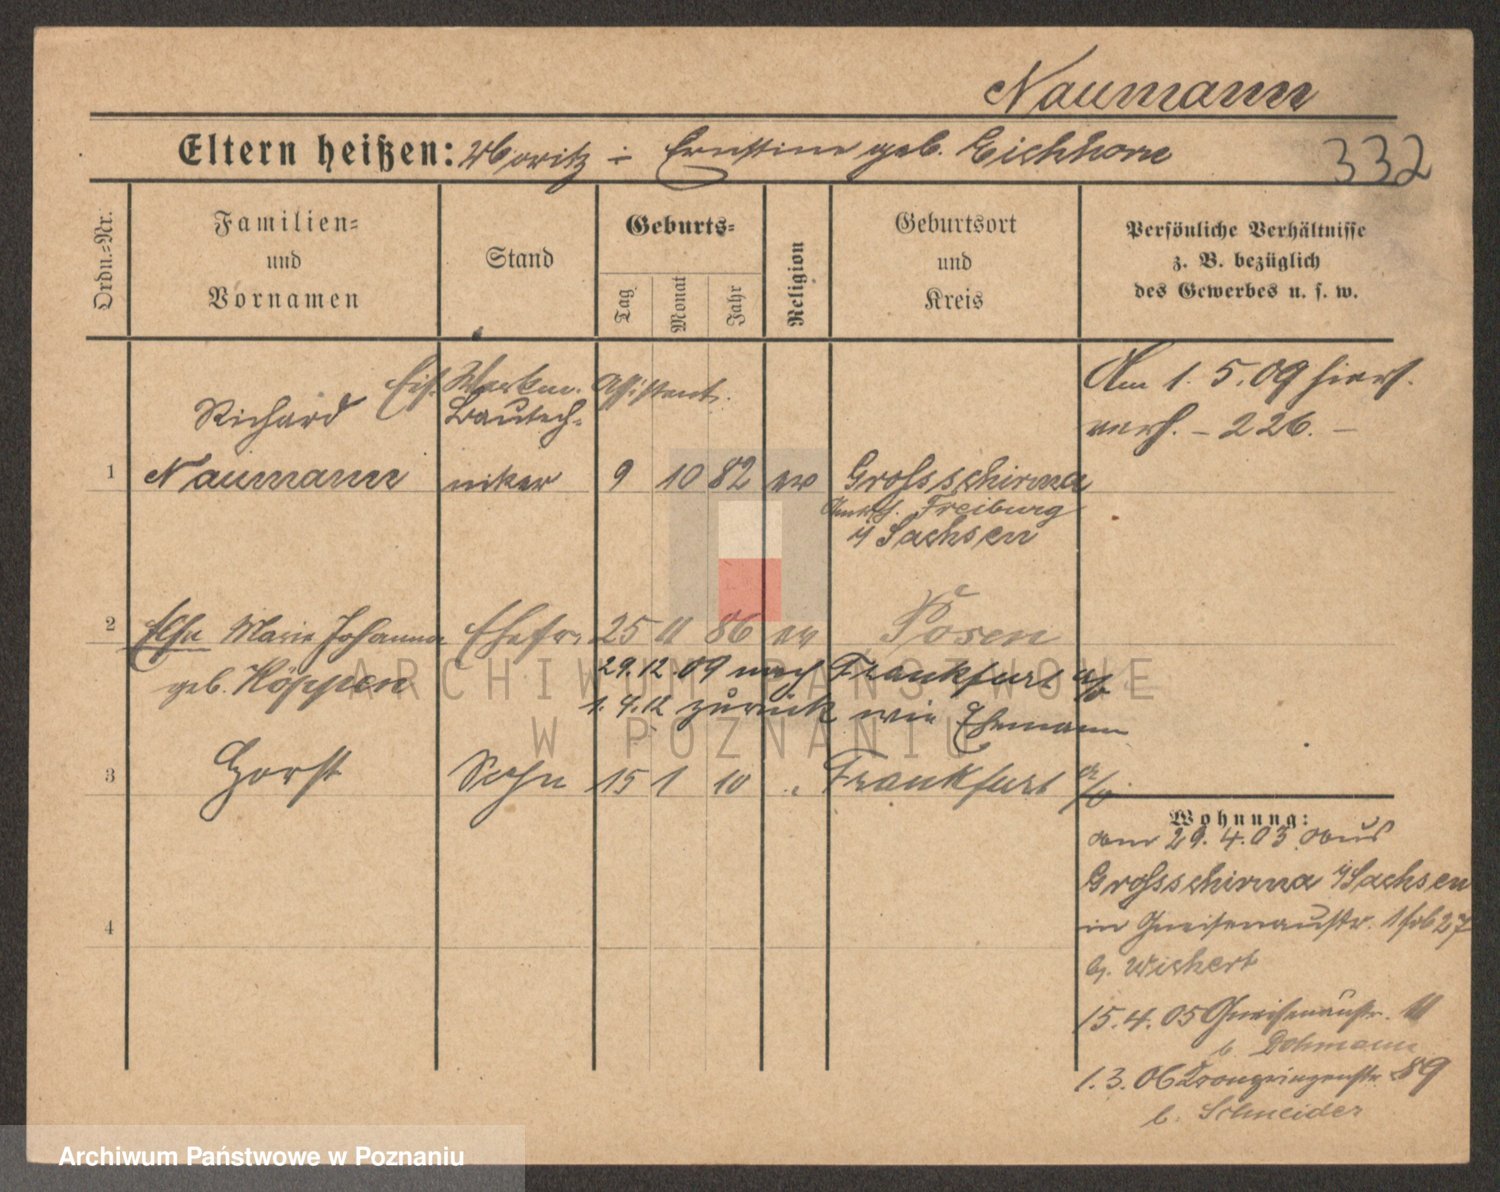 Naumann
332
Eltern heißen: Moritz u. Ernstine geb. Eichhorn
Ordn.-Nr.
Familien-
und
Vornamen
Stand
Geburts-
Tag
Monat
Jahr
Religion
Geburtsort
und
Kreis
Persönliche Verhältnisse
z. B. bezüglich
des Gewerbes u. s. w.
Assistent.
Am 1. 5. 09 hiers.
verh. - 226. -
Richard
Bautech-
1 Naumann niker 9 10 82 ev Grossschirma
Freiburg
i/ Sachsen
2 Else Marie Johanna Ehefr. 25 11 86 ev Posen
geb. Höppen
29.12.09 nach Frankfurt a/o
1.4.12 zurück wie Ehemann
3 Horst Sohn 15 1 10 " Frankfurt a/o
4
Wohnung:
am 29. 4. 03 aus
Grossschirma i/Sachsen
in Gneisenaustr. 27
b. Wichert
15. 4. 05 Gneisenaustr. 11
b Dohmann
1. 3. 06 Kronprinzenstr 89
b. Schneider
ARCHIWUM PAŃSTWOWE
W POZNANIU
Archiwum Państwowe w Poznaniu